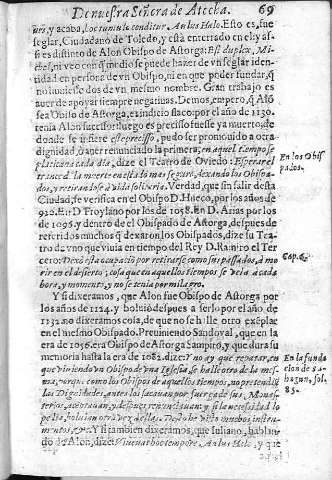 De nuestra Señora de Atocha. 69
uri, y acaba, Loc tumulo conditur, An lus Helo. Esto es, fue
seglar, Ciudadano de Toledo, y està enterrado en el; y assi
es distinto de Alon Obispo de Astorga: Est duplex, Mi-
chel, ni veo con q̃ medio se puede hazer de vn seglar iden-
tidad en persona de vn Obispo, ni en que poder fundar, q̃
no huuiesse dos de vn mesmo nombre. Gran trabajo es
auer de apoyar siempre negatiuas. Demos, empero, q̃ Alõ
sea Obispo de Astorga, es indicio flaco por el año de 1130.
tenia Alon sucessor luego es preciso fuesse ya muerto, de
donde se infiere
este preciso, pudo ser promouido a otra
dignidad, ò auer renunciado la primera; en aquel tiempo se
platicaua cada dia, dize el Teatro de Ouiedo: Esperar el
trance de la muerte en estado mas seguro, dexando los Obispa-
dos, y retirandose à vida solitaria. Verdad, que sin salir desta
Ciudad, se verifica en el Obispo D. Hueco, por los años de
932. En D. Troylano por los de 1058. En D. Arias por los
de 1095. y dentro de el Obispado de Astorga, despues de
referidos muchos q̃ dexaron los Obispados, dize su Tea-
tro de vno que viuia en tiempo del Rey D. Ramiro el Ter
cero: Dexò esta ocupaciõ por retirarse como sus passados, à mo
rir en el desierto; cosa que en aquellos tiempos se veia à cada
hora, y momento, y no se tenia por milagro.
En los Obis-
pados.
Cap. 6.
Y si dixeramos, que Alon fue Obispo de Astorga por
los años de 1124. y boluiò despues a serlo por el año, de
1132. no dixeramos cosa, de que no se halle otro exẽplar
en el mesmo Obispado. Preuiniendo Sandoval, que en la
era de 1056. era Obispo de Astorga Sampiro, y que dura su
memoria hasta la era de 1082. dize: Y no ay que reparar, en
que viuiendo vn Obispo de vna Iglesia, se halle otro de la mes-
ma, porque como los Obispos de aquellos tiempos, no pretendiã
las Dignidades, antes los sacauan por fuerça de sus Monas-
terios, aceptauan, y despues renunciauan, y si la necessidad lo
pedia, boluian otra vez à ellos.
En la funda
cion de Sa-
hagun, fol.
85.
Y si tambien dixeramos, que Iuliano, hablan-
do de Alon, dize: Viuit hoc tempore An lus Helo, y que